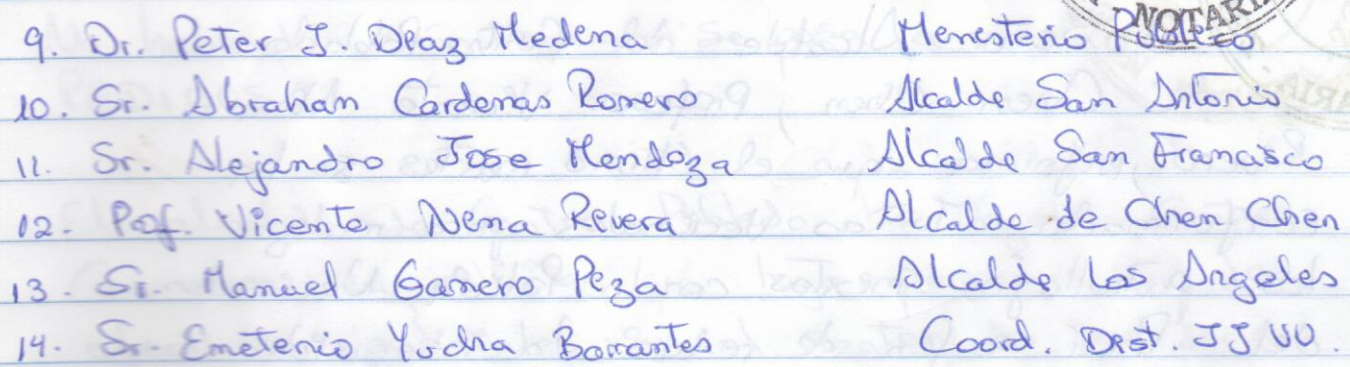 9. Dr. Peter J. Deaz Medena Menesterio Publeco
10. Sr. Abrahan Cardenas Romero Alcalde San Antonio
11. Sr. Alejandro Jose Mendoza Alcalde San Francisco
12. Prof. Vicente Nena Revera Alcalde de Chen Chen
13. Sr. Manuel Gamero Peza Alcalde Los Angeles
14. Sr. Emeterio Yucra Barrantes Coord. Dest. JJ VV.
NOTARI